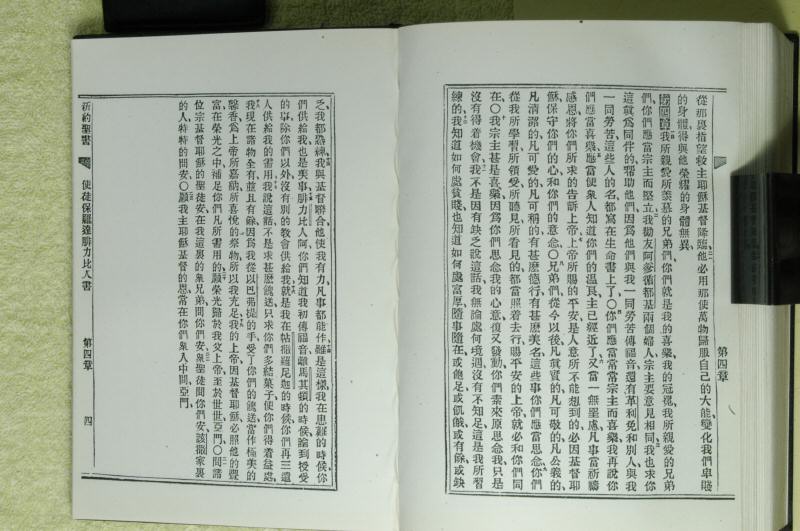 從那裏指望救主耶穌基督降臨他必用那使萬物歸服自己的大能變化我們卑賤
的身體得與他榮耀的身體無異
第四章 我所親愛所羨慕的兄弟們你們就是我的喜樂我的冠冕我所親愛的兄弟
們你們應當宗主而堅立我勸友阿爹循都基兩個婦人宗主要意見相同我也求你
這就為同伴的幫助他們因為他們與我一同勞苦傳福音還有革利免和別人與我
一同勞苦這些人的名都寫在生命書上了○你們應當常常宗主而喜樂我再說你
們應當喜樂應當使衆人知道你們的溫良主已經近了又當一無罣慮凡事當祈禱
感恩將你們所求的告訴上帝上帝所賜的平安是人意所不能想到的必因基督耶
穌保守你們的心和你們的意念○兄弟們從今以後凡眞實的凡可敬的凡公義的
凡清潔的凡可愛的凡可稱的有甚麽德行有甚麽美名這些事你們應當思念你們
從我所學習所領受所聽見所看見的都當照着去行賜平安的上帝就必和你們同
在○我宗主甚是喜樂因爲你們思念我的心意復又發動你們素來原思念我只是
沒有得着機會我不是因有缺乏說這話我無論處何境遇沒有不知足這是我所習
練的我知道如何處貧賤也知道如何處富厚隨事隨在或飽足或飢餓或有餘或缺
第四章
乏我都熟練我與基督聯合他使我有力凡事都能作雖是這樣我在患難的時候你
們供給我也是美事腓力比人阿你們知道我初傳福音離馬其頓的時候論到授受
的事除你們以外沒有別的教會供給我就是我在帖撒羅尼迦的時候你們再三遣
人供給我的需用我說這話不是求甚麽餽送只求你們多結果子使你們得着益處
我現在諸物全有並且有餘因爲我從以巴弗提的手受了你們的餽送當作極美的
馨香爲上帝所嘉納所喜悅的祭物所以我充足我的上帝因基督耶穌必照他的豐
富在榮光之中補足你們凡所需用的願榮光歸於我父上帝至於世世亞門○問諸
位宗基督耶穌的聖徒安在我這裏的衆兄弟問你們安衆聖徒問你們安該撒家裏
的人特特的問安○願我主耶穌基督的恩常在你們衆人中間亞門
新約聖書 使徒保羅達腓力比人書 第四章 四